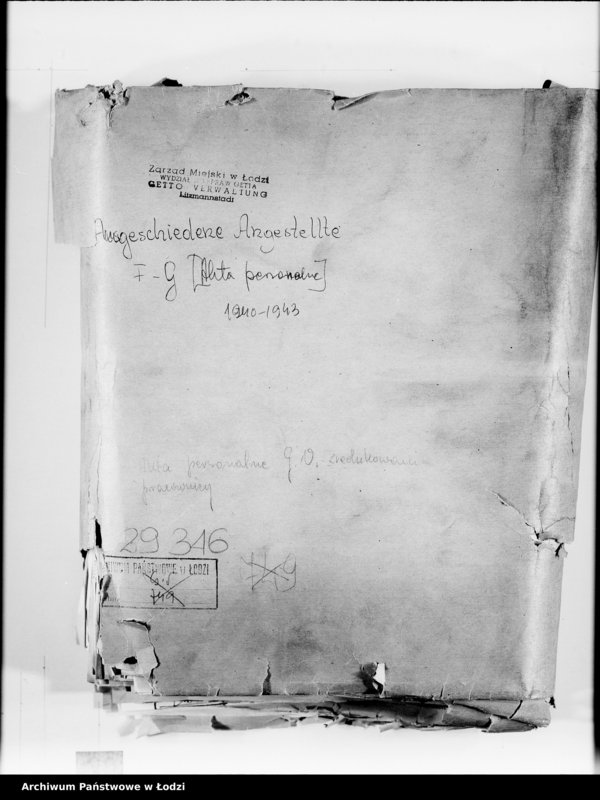 Zarząd Miejski w Łodzi
WYDZIAŁ SPRAW GETTA
GETTO VERWALTUNG
Litzmannstadt
Ausgeschiedene Angestellte
F-G [Akta personalne]
1940-1943
Akta personalne G.V. zredukowani
pracownicy
29346
ARCHIWUM PAŃSTWOWE w ŁODZI
Archiwum Państwowe w Łodzi